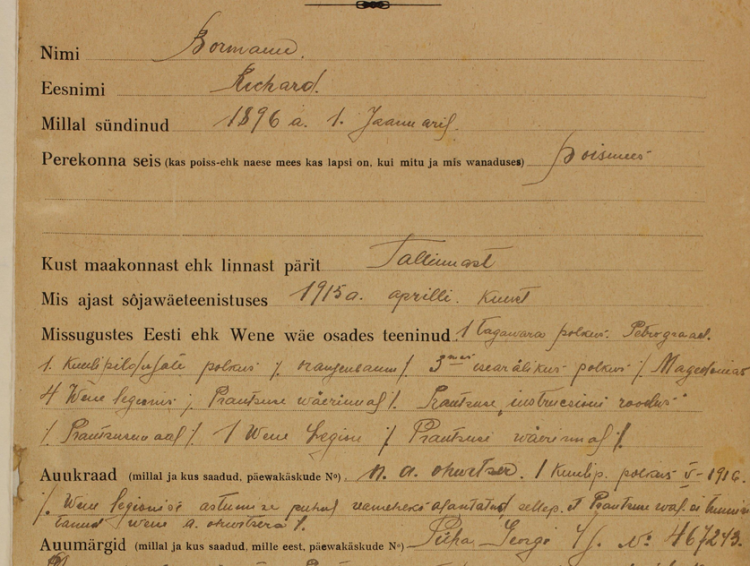 Nimi Bormann.
Eesnimi Richard.
Millal sündinud 1896 a. 1. Jaanuaril.
Perekonna seis (kas poiss-ehk naese mees kas lapsi on, kui mitu ja mis wanaduses) poismees
Kust maakonnast ehk linnast pärit Tallinnast
Mis ajast sõjawäeteenistuses 1915 a. aprilli kuust
Missugustes Eesti ehk Wene wäe osades teeninud 1 tagawara polkus. Petrograad.
1. Kuulipildujate polkus /. oranienbaum /. 3 polkus /. Magedonias
4 Wene legionis /. Prantsuse wäerinnal /. Prantsuse instruksioni roodus
/. Prantsusmaal /. 1 Wene Legion /. Prantsuse wäerinnal /.
Auukraad (millal ja kus saadud, päewakäskude №). n. a. ohwitser. 1 Kuulip. polkus V-1916.
/. Wene legionisse astumise puhul reameheks alantatud sellep. et Prantsuse wal. ei
wene a. ohwitsera /.
Auumärgid (millal ja kus saadud, mille eest, päewakäskude №) Püha Georgi 4 j. № 467243.